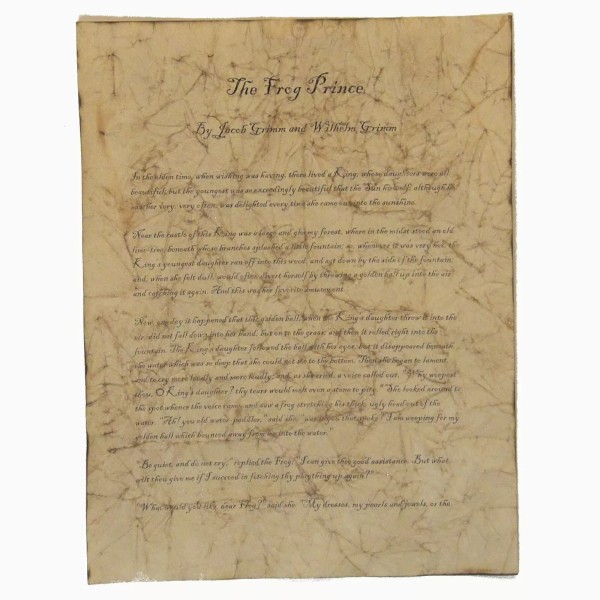 The Frog Prince
By Jacob Grimm and Wilhelm Grimm
In the olden time, when wishing was having, there lived a King, whose daughters were all
beautiful; but the youngest was so exceedingly beautiful that the Sun himself, although he
saw her very, very often, was delighted every time she came out into the sunshine.
Near the castle of this King was a large and gloomy forest, where in the midst stood an old
lime-tree, beneath whose branches splashed a little fountain; so, whenever it was very hot, the
King's youngest daughter ran off into this wood, and sat down by the side of the fountain;
and, when she felt dull, would often divert herself by throwing a golden ball up into the air
and catching it again. And this was her favorite amusement.
Now, one day it happened that this golden ball, when the King's daughter threw it into the
air, did not fall down into her hand, but on to the grass; and then it rolled right into the
fountain. The King's daughter followed the ball with her eyes, but it disappeared beneath
the water which was so deep that she could not see to the bottom. Then she began to lament,
and to cry more loudly and more loudly; and, as she cried, a voice called out, "Why weepest
thou, O King's daughter? thy tears would melt even a stone to pity." She looked around to
the spot whence the voice came, and saw a frog stretching his thick, ugly head out of the
water. "Ah! you old water-paddler," said she, "was it you that spoke? I am weeping for my
golden ball which bounced away from me into the water."
"Be quiet, and do not cry," replied the Frog; "I can give thee good assistance. But what
wilt thou give me if I succeed in fetching thy plaything up again?"
"What would you like, dear Frog?" said she. "My dresses, my pearls and jewels, or the